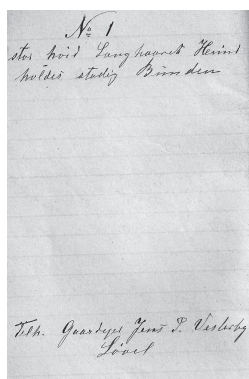 No 1
stor hvid Langhaaret Hund
holdes stadig Bunden
Tilh. Gaardejer Jens P. Vesterby
Løvel